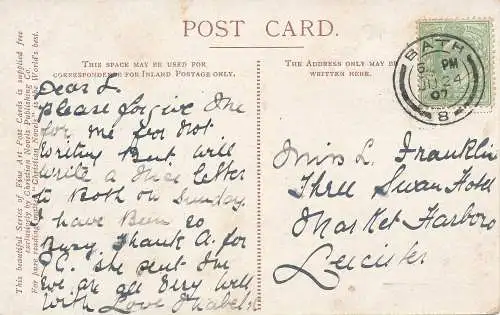 POST CARD.
THIS SPACE MAY BE USED FOR
CORRESPONDENCE FOR INLAND POSTAGE ONLY.
THE ADDRESS ONLY MAY BE
WRITTEN HERE.
This beautiful Series of Fine Art Post Cards is supplied free
exclusively by Christian Novels Publishing Co.
For pure reading matter "Christian Novels" is the World's best.
Dear L.
Please forgive me
for me for not
writing But will
write a nice letter
to Both on Sunday.
I have Been so
Busy. Thank A. for
P.C. she sent me
we are all very well
With Love Mabel
Miss L. Franklin
Three Swan Hotel
Market Harboro
Leicester
BATH
PM
07
8